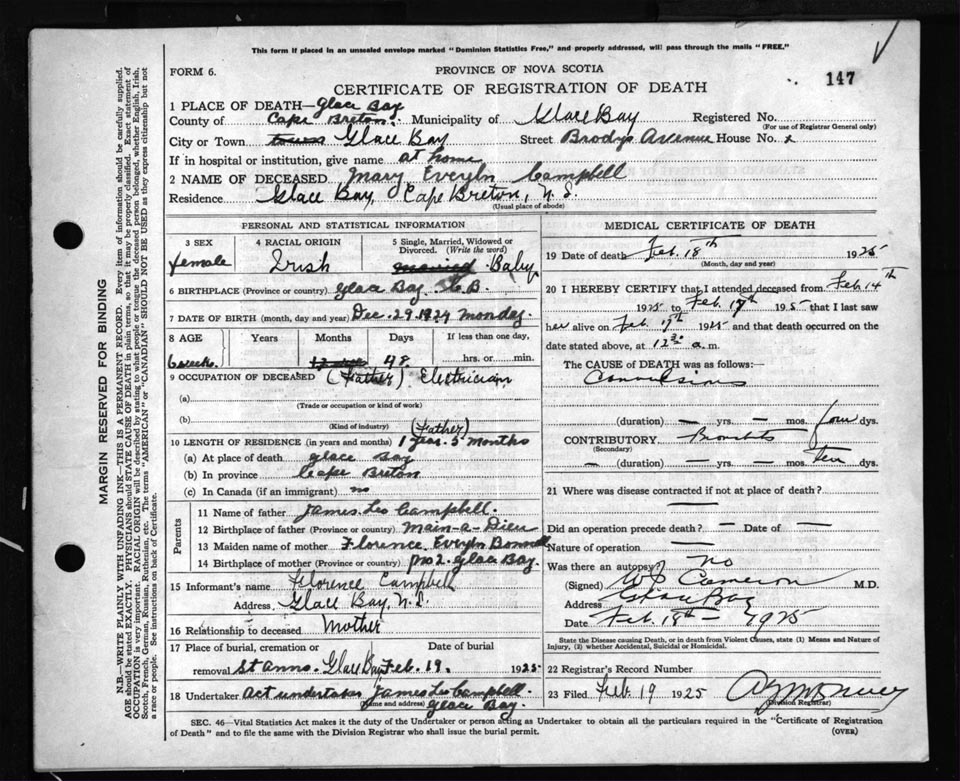 This form if placed in an unsealed envelope marked "Dominion Statistics Free," and properly addressed, will pass through the mails "FREE."
FORM 6.
PROVINCE OF NOVA SCOTIA
147
CERTIFICATE OF REGISTRATION OF DEATH
1 PLACE OF DEATH— Glace Bay
County of Cape Breton Municipality of Glace Bay Registered No.
(For use of Registrar General only)
City or Town Glace Bay Street Brodys Avenue House No. x
If in hospital or institution, give name at home
2 NAME OF DECEASED Mary Everyln Campbell
Residence Glace Bay, Cape Breton, N. S.
(Usual place of abode)
PERSONAL AND STATISTICAL INFORMATION
3 SEX
female
4 RACIAL ORIGIN
Irish
5 Single, Married, Widowed or Divorced. (Write the word)
married Baby
6 BIRTHPLACE (Province or country) Glace Bay C. B.
7 DATE OF BIRTH (month, day and year) Dec. 29. 1924 Monday.
8 AGE Years Months Days If less than one day,
6 weeks. 48 hrs. or min.
9 OCCUPATION OF DECEASED (Father) Electrician
(a)
(Trade or occupation or kind of work)
(b)
(Kind of industry) (Father)
10 LENGTH OF RESIDENCE (in years and months) 1 year. 5 months
(a) At place of death Glace Bay
(b) In province Cape Breton
(c) In Canada (if an immigrant) no
Parents
11 Name of father James Leo Campbell.
12 Birthplace of father (Province or country) Main-a-Dieu
13 Maiden name of mother Florence Everyln Bonnell
14 Birthplace of mother (Province or country) No 2. Glace Bay.
15 Informant's name Florence Campbell
Address Glace Bay, N. S.
16 Relationship to deceased Mother
17 Place of burial, cremation or removal Date of burial
St Anns. Glace Bay Feb. 19. 1925
18 Undertaker Act undertaker James Leo Campbell.
(Name and address) Glace Bay.
MEDICAL CERTIFICATE OF DEATH
19 Date of death Feb. 18th 1925
(Month, day and year)
20 I HEREBY CERTIFY that I attended deceased from Feb 14th
1925 to Feb 17th 1925 that I last saw
her alive on Feb 17th 1925 and that death occurred on
date stated above, at 12 30 a. m.
The CAUSE OF DEATH was as follows:
Convulsions
(duration) — yrs. — mos. four dys.
CONTRIBUTORY Bronchitis
(Secondary)
(duration) — yrs. — mos. ten dys.
21 Where was disease contracted if not at place of death?
—
Did an operation precede death? — Date of —
Nature of operation —
Was there an autopsy? no
(Signed) Cameron M.D.
Address Glace Bay
Date Feb. 18th — 1925
State the Disease causing Death, or in death from Violent Causes, state (1) Means and Nature of Injury, (2) whether Accidental, Suicidal or Homicidal.
22 Registrar's Record Number
23 Filed Feb 19 1925
(Division Registrar)
SEC. 46—Vital Statistics Act makes it the duty of the Undertaker or person acting as Undertaker to obtain all the particulars required in the "Certificate of Registration
of Death" and to file the same with the Division Registrar who shall issue the burial permit. (OVER)
MARGIN RESERVED FOR BINDING
N.B.—WRITE PLAINLY WITH UNFADING INK—THIS IS A PERMANENT RECORD. Every item of information should be carefully supplied.
AGE should be stated EXACTLY. PHYSICIANS should STATE CAUSE OF DEATH in plain terms, so that it may be properly classified. Exact statement of
OCCUPATION is very important. RACIAL ORIGIN will be described by stating to what people or tongue the deceased person belonged, whether English, Irish,
Scotch, French, German, Russian, Ruthenian, etc. The terms "AMERICAN" or "CANADIAN" SHOULD NOT BE USED as they express citizenship but not
a race or people. See instructions on back of Certificate.